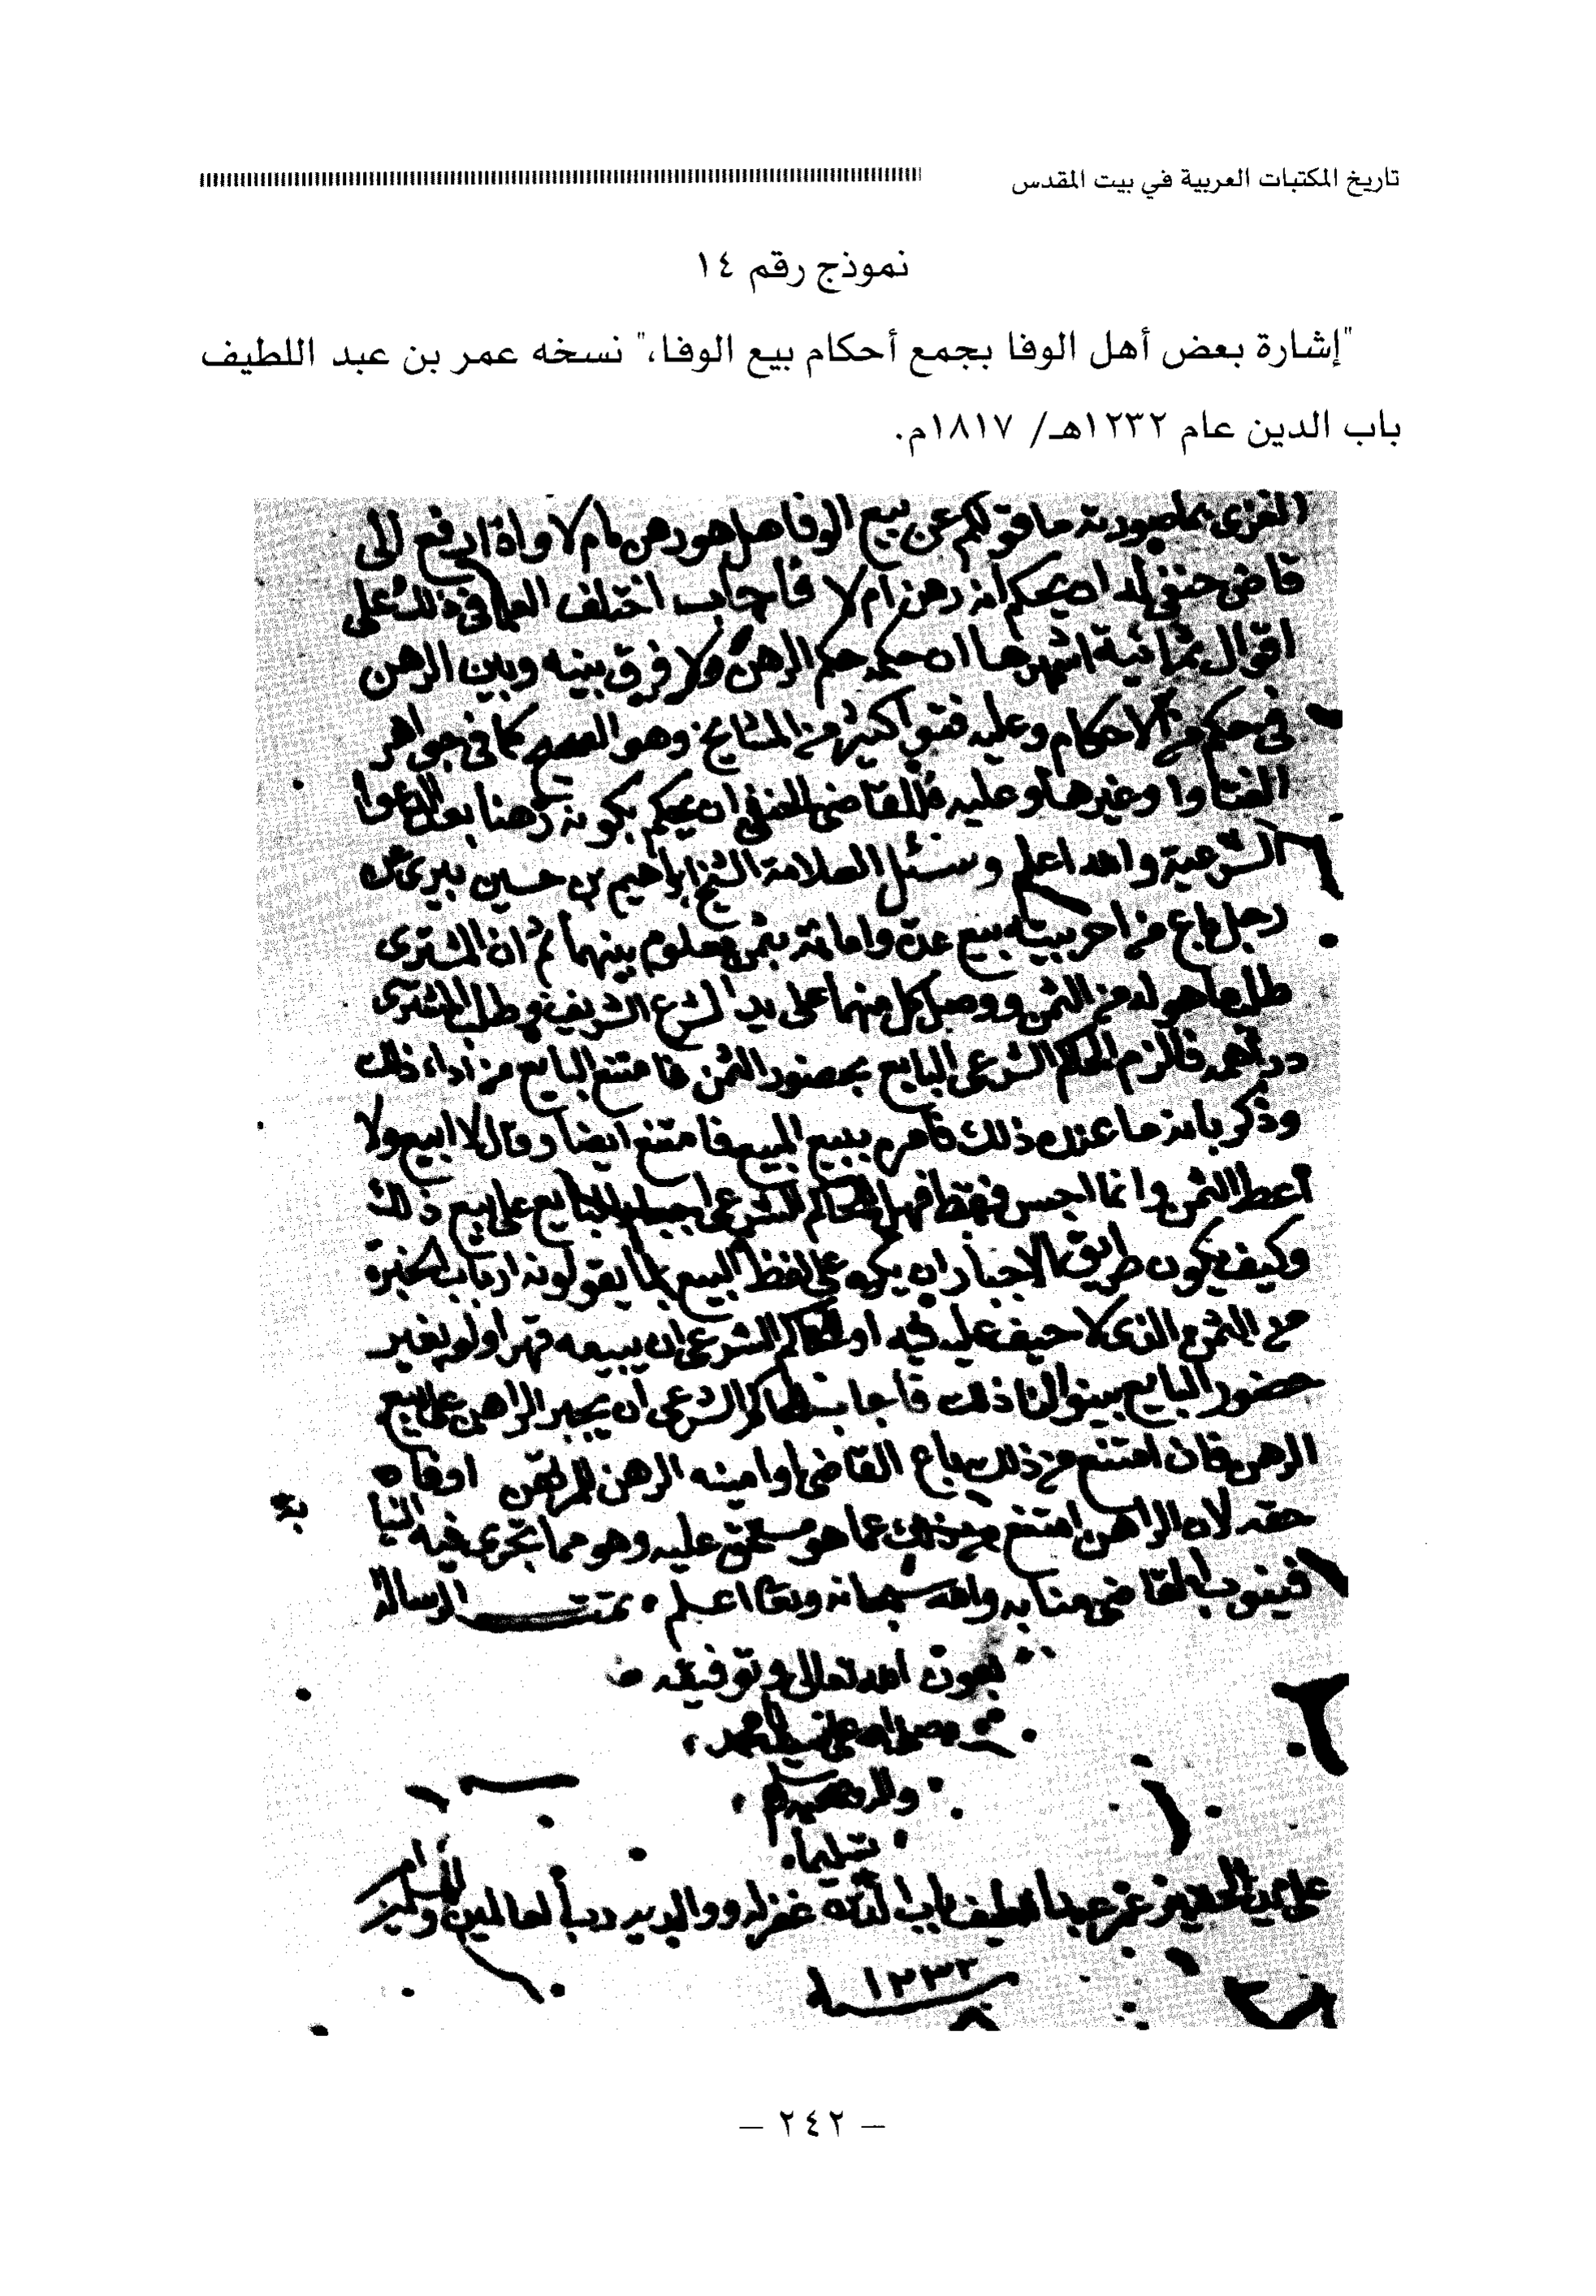 تاريخ المكتبات العربية في بيت المقدس
نموذج رقم ١٤
"إشارة بعض أهل الوفا بجمع أحكام بيع الوفا،" نسخه عمر بن عبد اللطيف
باب الدين عام ١٢٣٢هـ/ ١٨١٧م.
الغزي بما صورته ما قولكم عن بيع الوفا هل هو رهن ام لا واذا رفع الى
قاضي حنفي له ان يحكم انه رهن ام لا فاجاب اختلف العلما في ذلك على
اقوال ثمانية اشهرها ان حكمه حكم الرهن ولا فرق بينه وبين الرهن
في حكم من الاحكام وعليه فتوى اكثر من المشايخ وهو الصحيح كما في جواهر
الفتاوا وغيرها وعليه فللقاضي الحنفي ان يحكم بكونه رهنا بعد الدعوا
الشرعية والله اعلم وسئل العلامة الشيخ ابراهيم بن حسين بيري عن
رجل باع من اخر بيته بيع عدة وامانة بثمن معلوم بينهما ثم ان المشتري
طلب ما هو له من الثمن ووصل كل منهما على يد الشرع الشريف وطلب المشتري
دراهمه فالزم الحاكم الشرعي البايع بحضور الثمن فامتنع البايع من اداء ذلك
وذكر بانه ما عنده ذلك فامره ببيع المبيع فامتنع ايضا وقال لا ابيع ولا
اعطي الثمن وانما احبس فقط فهل للحاكم الشرعي اجبار البايع على بيع ذلك
وكيف يكون طريق الاجبار ان يكره على لفظ البيع بما يقولونه ارباب الخبرة
من الثمن الذي لا حيف عليه فيه او للحاكم الشرعي ان يبيعه قهرا ولو بغير
حضور البايع بينوا لنا ذلك فاجاب للحاكم الشرعي ان يجبر الراهن على بيع
الرهن فان امتنع من ذلك باع القاضي او امينه الرهن للمرتهن اوفاه
حقه لان الراهن امتنع من ذلك عما هو مستحق عليه وهو مما تجري فيه النيا
بة
فينوب القاضي منابه والله سبحانه وتعا اعلم تمت الرسالة
بعون الله تعالى وتوفيقه
وصلى الله على سيدنا محمد
واله وصحبه وسلم
تسليما
على يد الحقير عمر عبد اللطيف باب الدين غفر له ووالديه رب العالمين وللمسلمين
سنه ١٢٣٢
– ٢٤٢ –